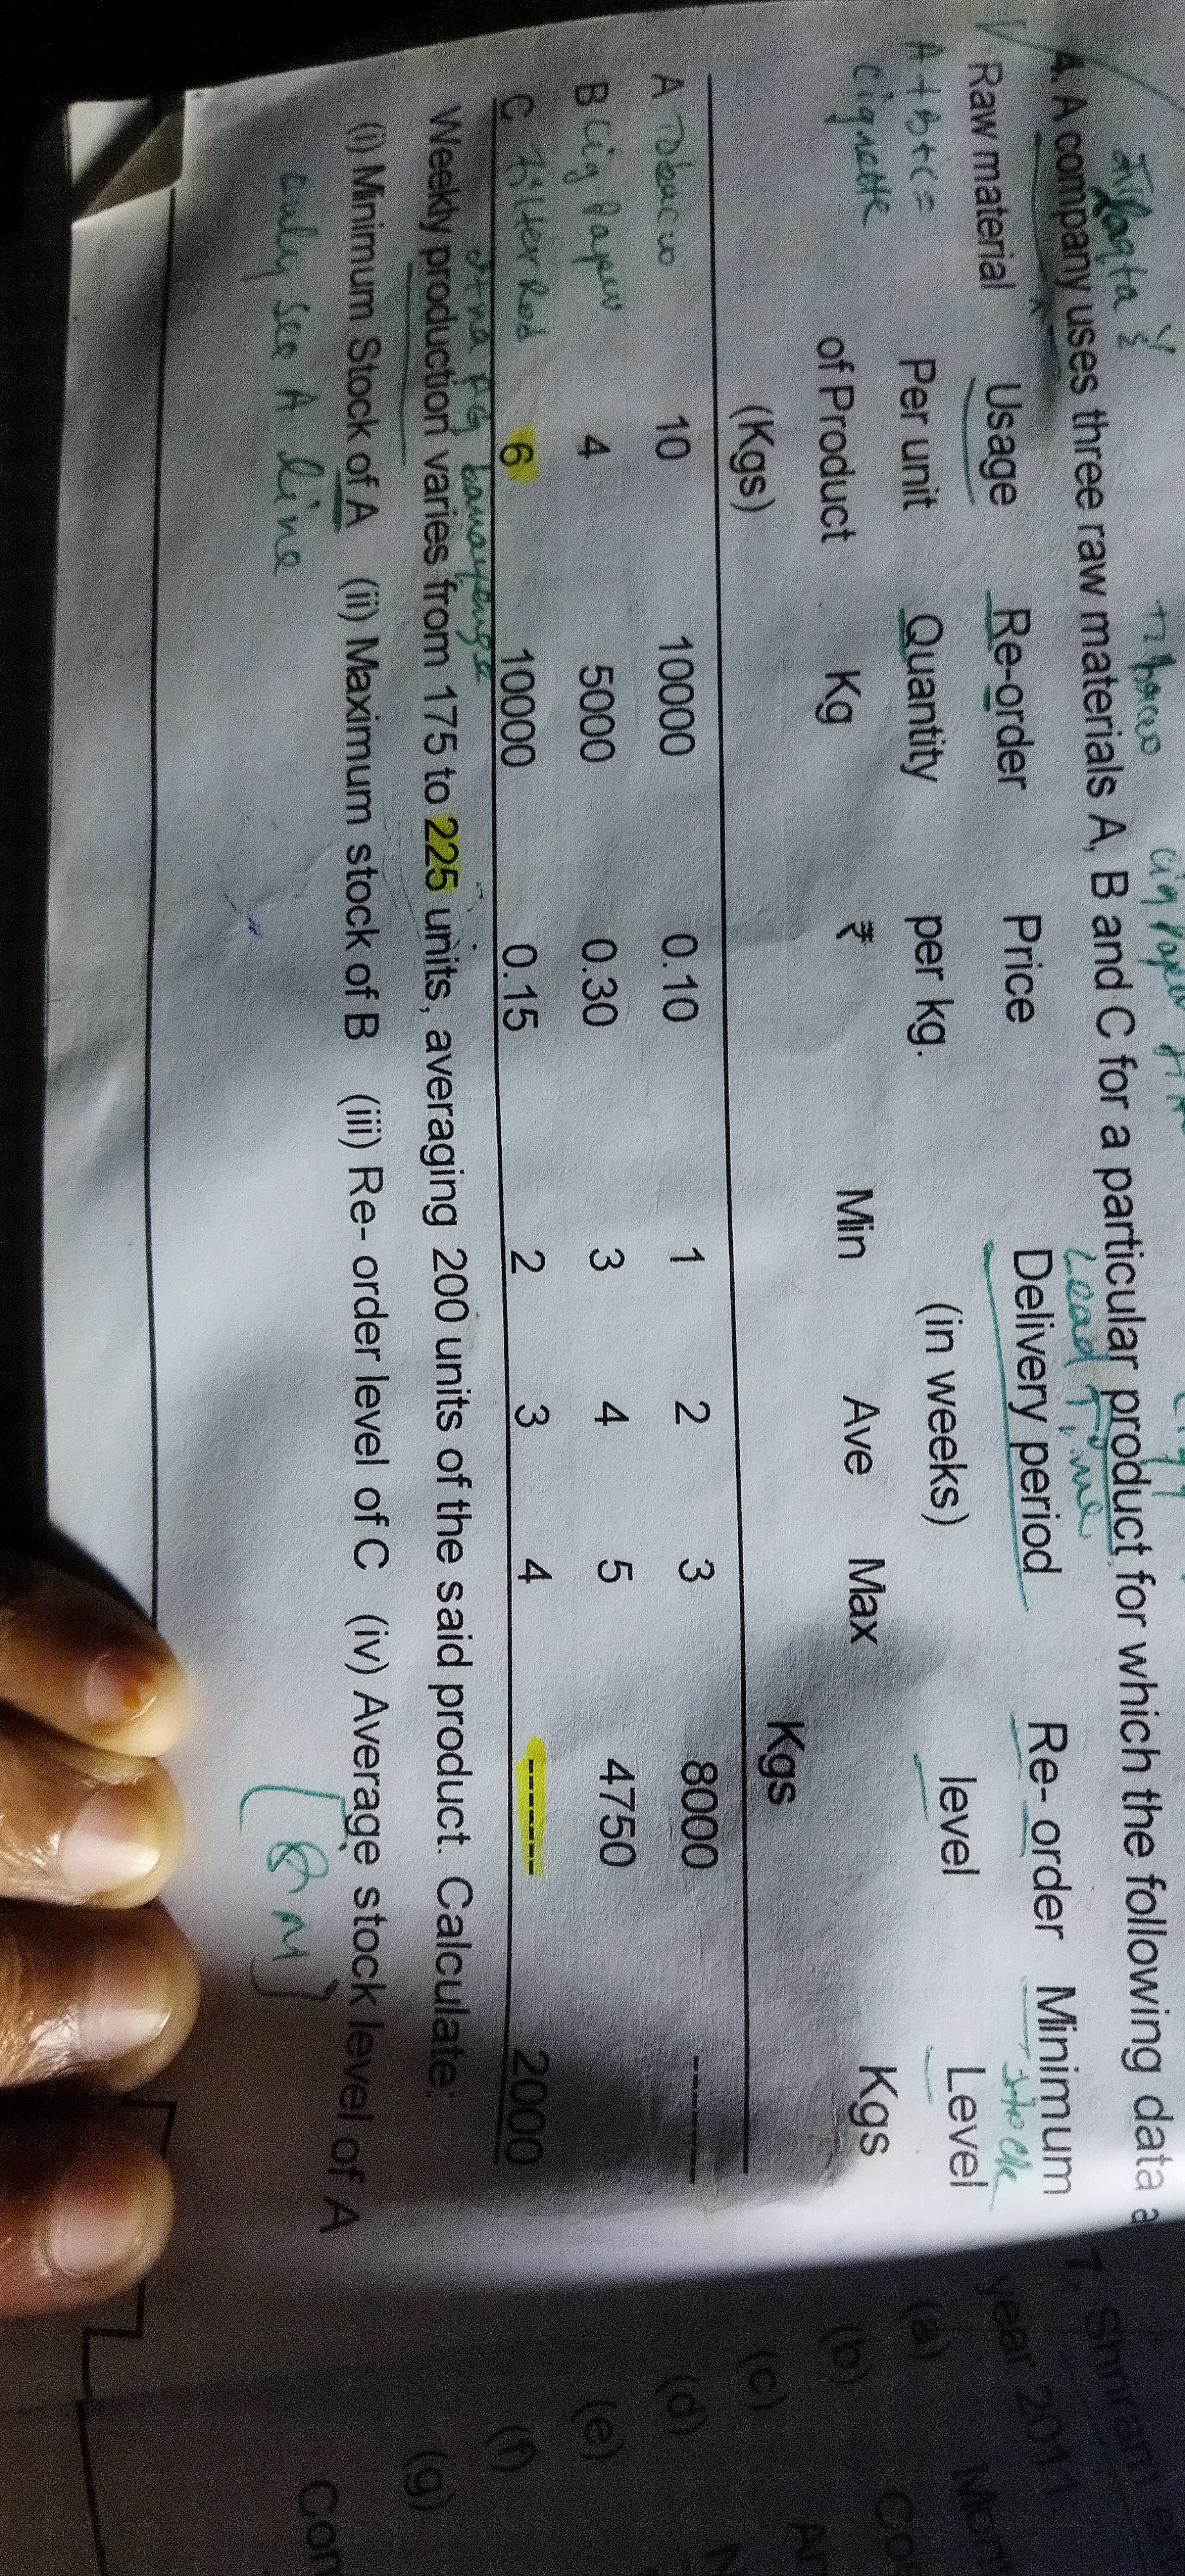 4. A company uses three raw materials A, B and C for a particular product for which the following data a
Lead Time
Raw material Usage Re-order Price Delivery period Re- order Minimum
stock
Per unit Quantity per kg. (in weeks) level Level
of Product Kg ₹ Min Ave Max Kgs
(Kgs) Kgs
A 10 10000 0.10 1 2 3 8000 ------
B Cig Paper 4 5000 0.30 3 4 5 4750
C Filter Rod 6 10000 0.15 2 3 4 ------ 2000
Weekly production varies from 175 to 225 units, averaging 200 units of the said product. Calculate:
(i) Minimum Stock of A (ii) Maximum stock of B (iii) Re- order level of C (iv) Average stock level of A
only see A line
7. Shriram
year 2011.
(a)
(b)
(c)
(d)
(e)
(f)
(g)